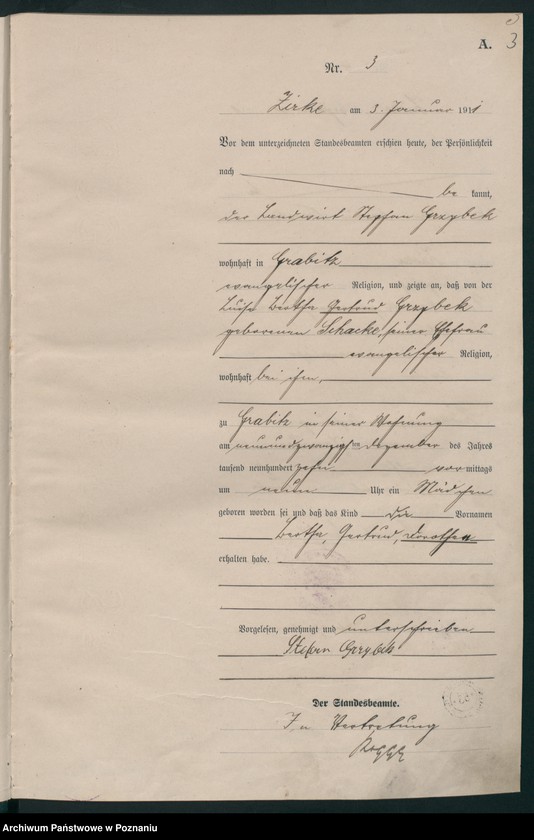 3
A. 3
Nr. 3
Zirke am 3. Januar 1911
Vor dem unterzeichneten Standesbeamten erschien heute, der Persönlichkeit
nach
be kannt,
der Landwirt Stephan Grzybek
wohnhaft in Grabitz
evangelischer Religion, und zeigte an, daß von der
Luise Bertha Gertrud Grzybek
geborenen Schacke, seiner Ehefrau
evangelischer Religion,
wohnhaft bei ihm,
zu Grabitz in seiner Wohnung
am neunundzwanzigsten Dezember des Jahres
tausend neunhundert zehn vor mittags
um neun Uhr ein Mädchen
geboren worden sei und daß das Kind die Vornamen
Bertha, Gertrud, Dorothea
erhalten habe.
Vorgelesen, genehmigt und unterschrieben
Stefan Grzybek
Der Standesbeamte.
In Vertretung
Archiwum Państwowe w Poznaniu